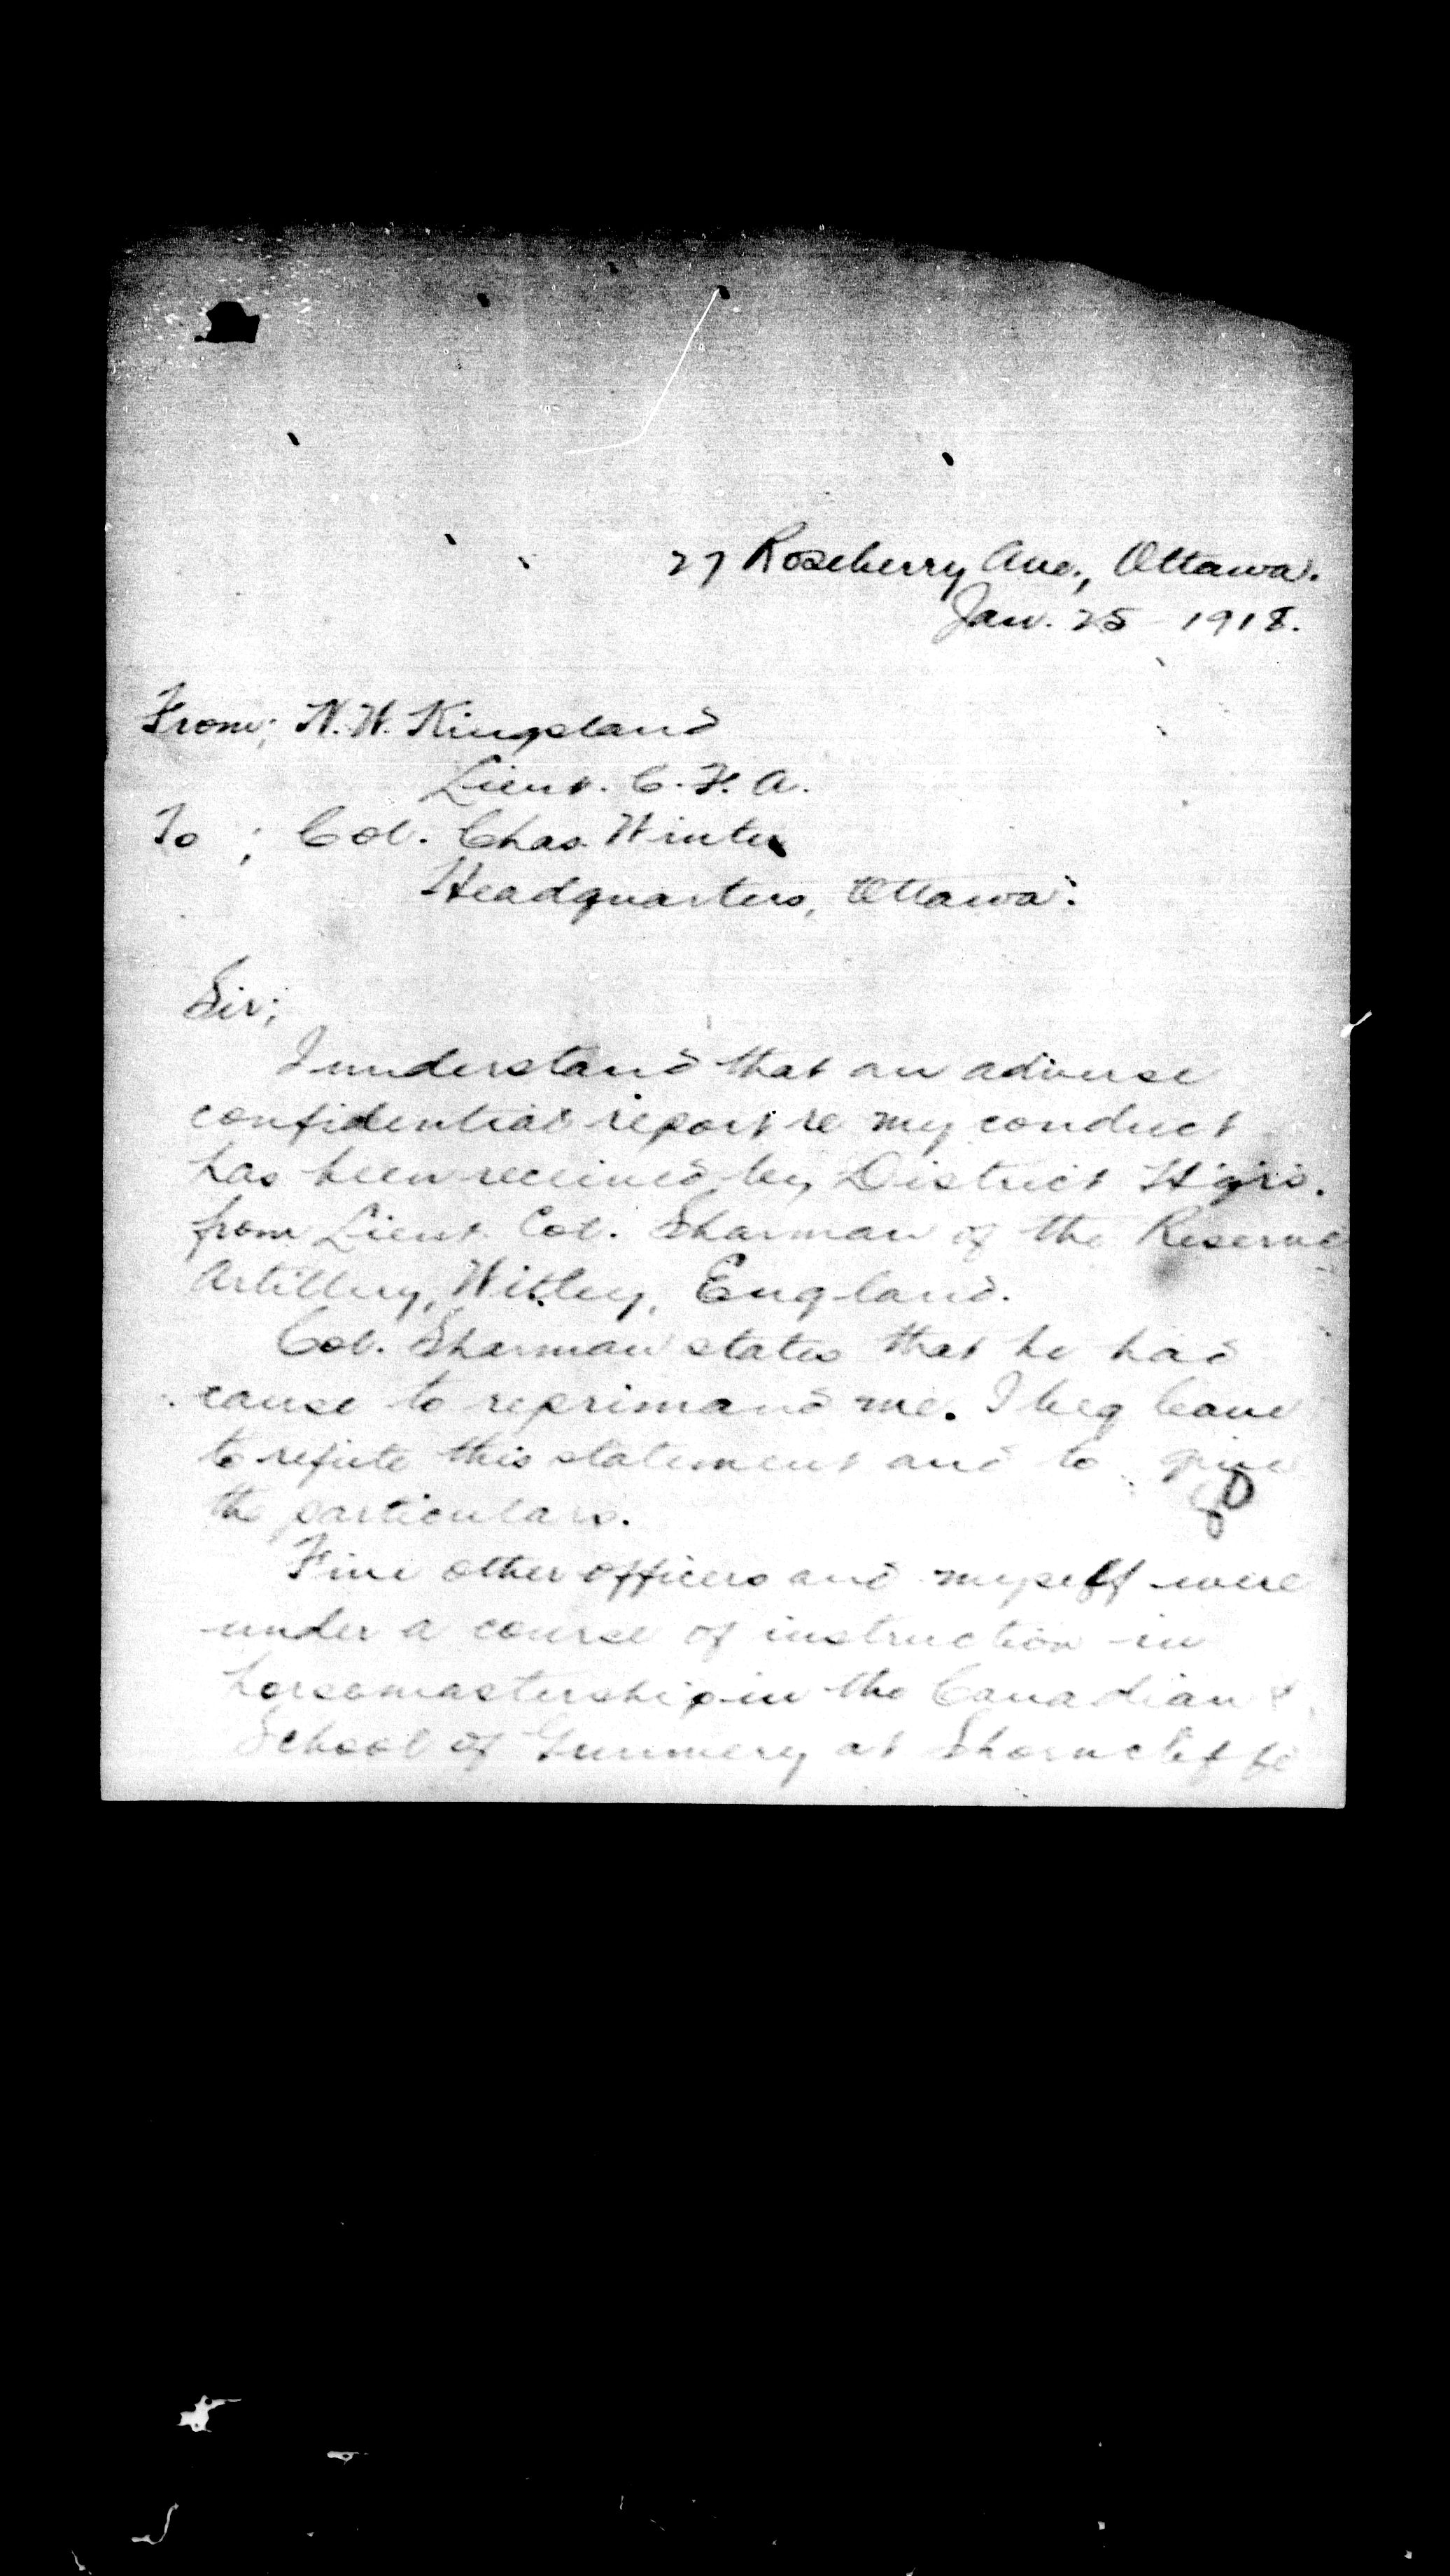 27 Roseberry Ave., Ottawa.
Jan. 25 - 1918.
From; N.W. Kingsland
Lieut. C.F.A.
To ; Col. Chas. Winter
Headquarters, Ottawa.
Sir;
I understand that an adverse
confidential report re my conduct
has been received by District Hqrs.
from Lieut. Col. Sharman of the Reserve
Artillery, Witley, England.
Col. Sharman states that he had
cause to reprimand me. I beg leave
to refute this statement and to give
the particulars.
Five other officers and myself were
under a course of instruction in
horsemastership in the Canadian
School of Gunnery at Shorncliffe